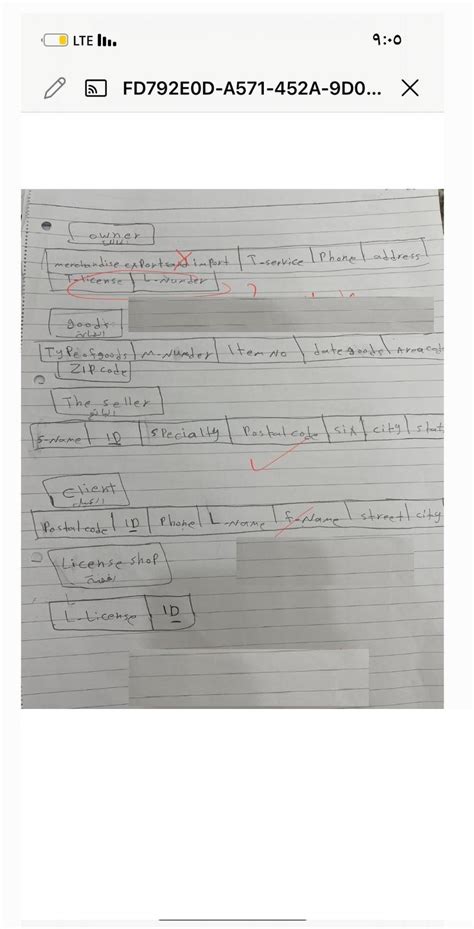 LTE ٩:٠٥
FD792E0D-A571-452A-9D0...
owner
المالك
merchandise exports and import T-service Phone address
T-license L-Number
goods
البضاعة
Type of goods M-Number Item No date goods Area cod
ZIP code
The seller
البائع
S-Name ID Specialty Postal code six city stat
Client
العميل
Postal code ID Phone L-Name f-Name street city
License shop
L-License ID